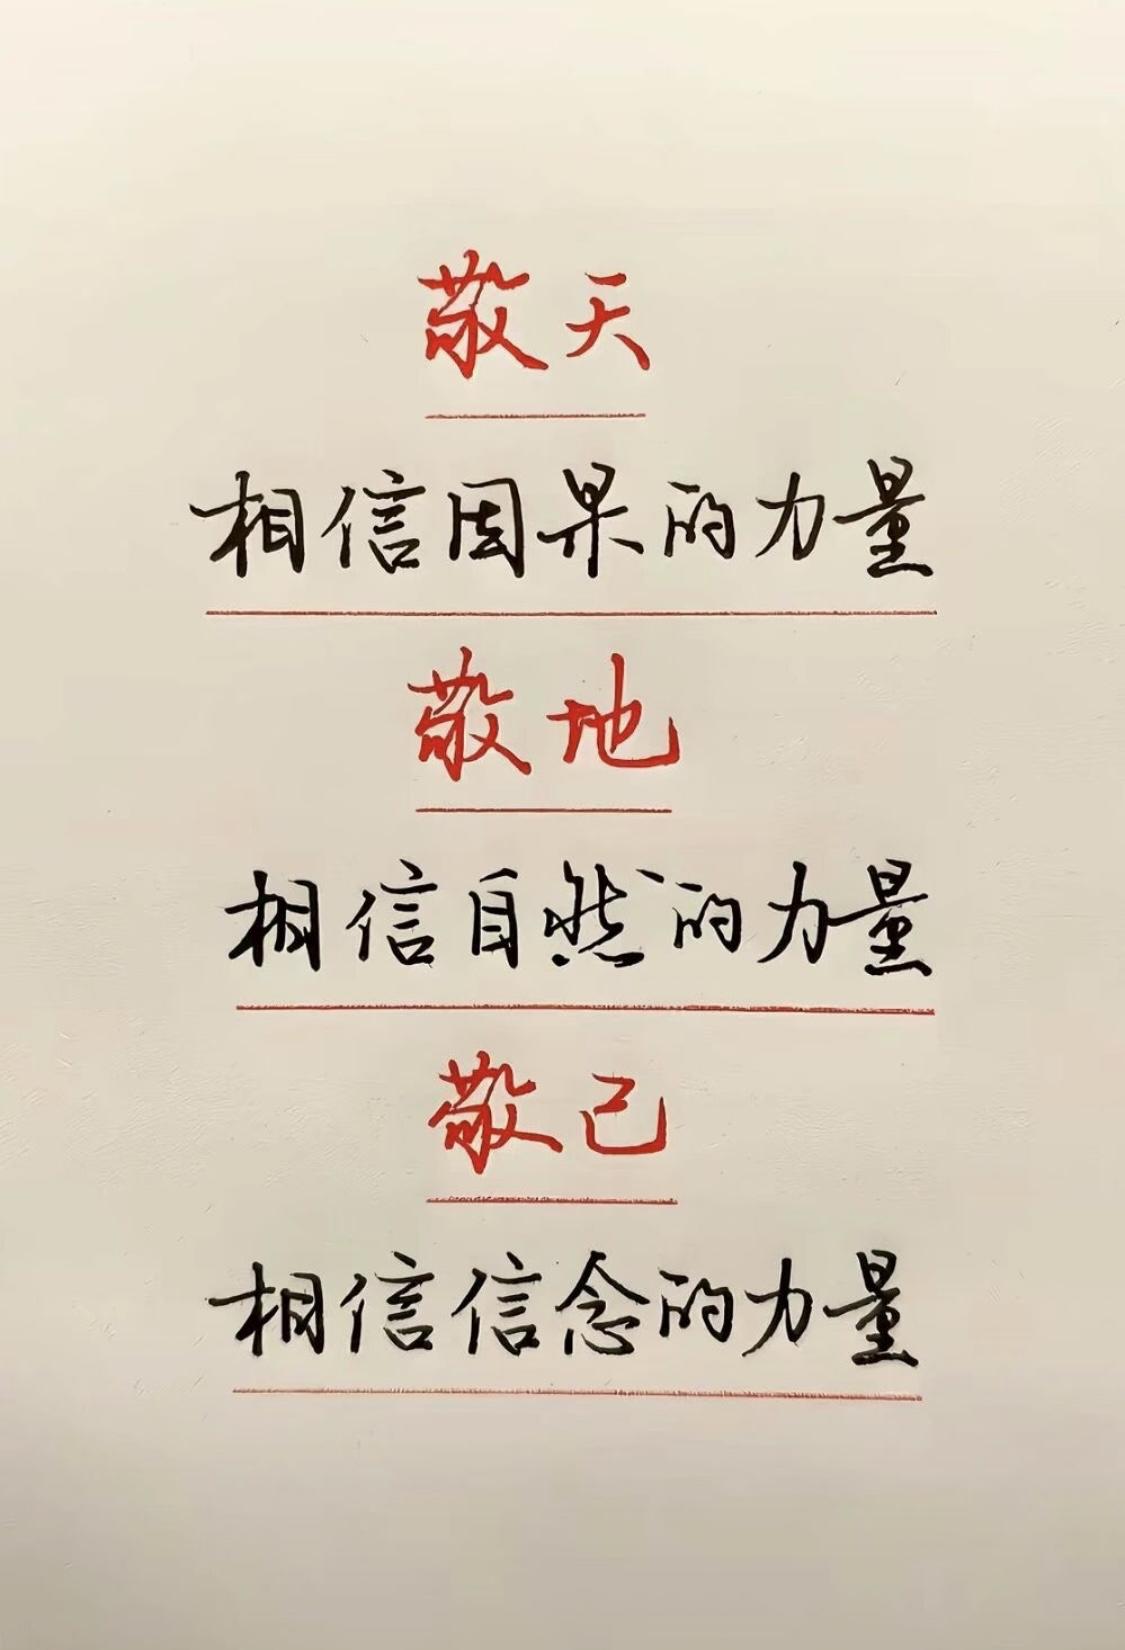 敬天
相信因果的力量
敬地
相信自然的力量
敬己
相信信念的力量